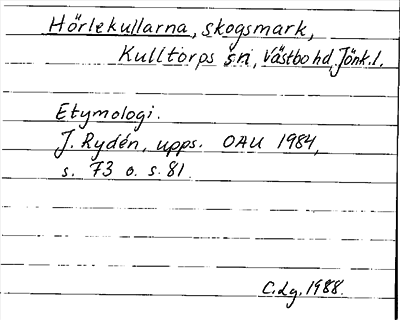 Hörlekullarna, skogsmark,
Kulltorps sn, Västbo hd, Jönk. l.
Etymologi.
J. Rydén, upps. OAU 1984,
s. 73 o. s. 81.
C. Lg. 1988.